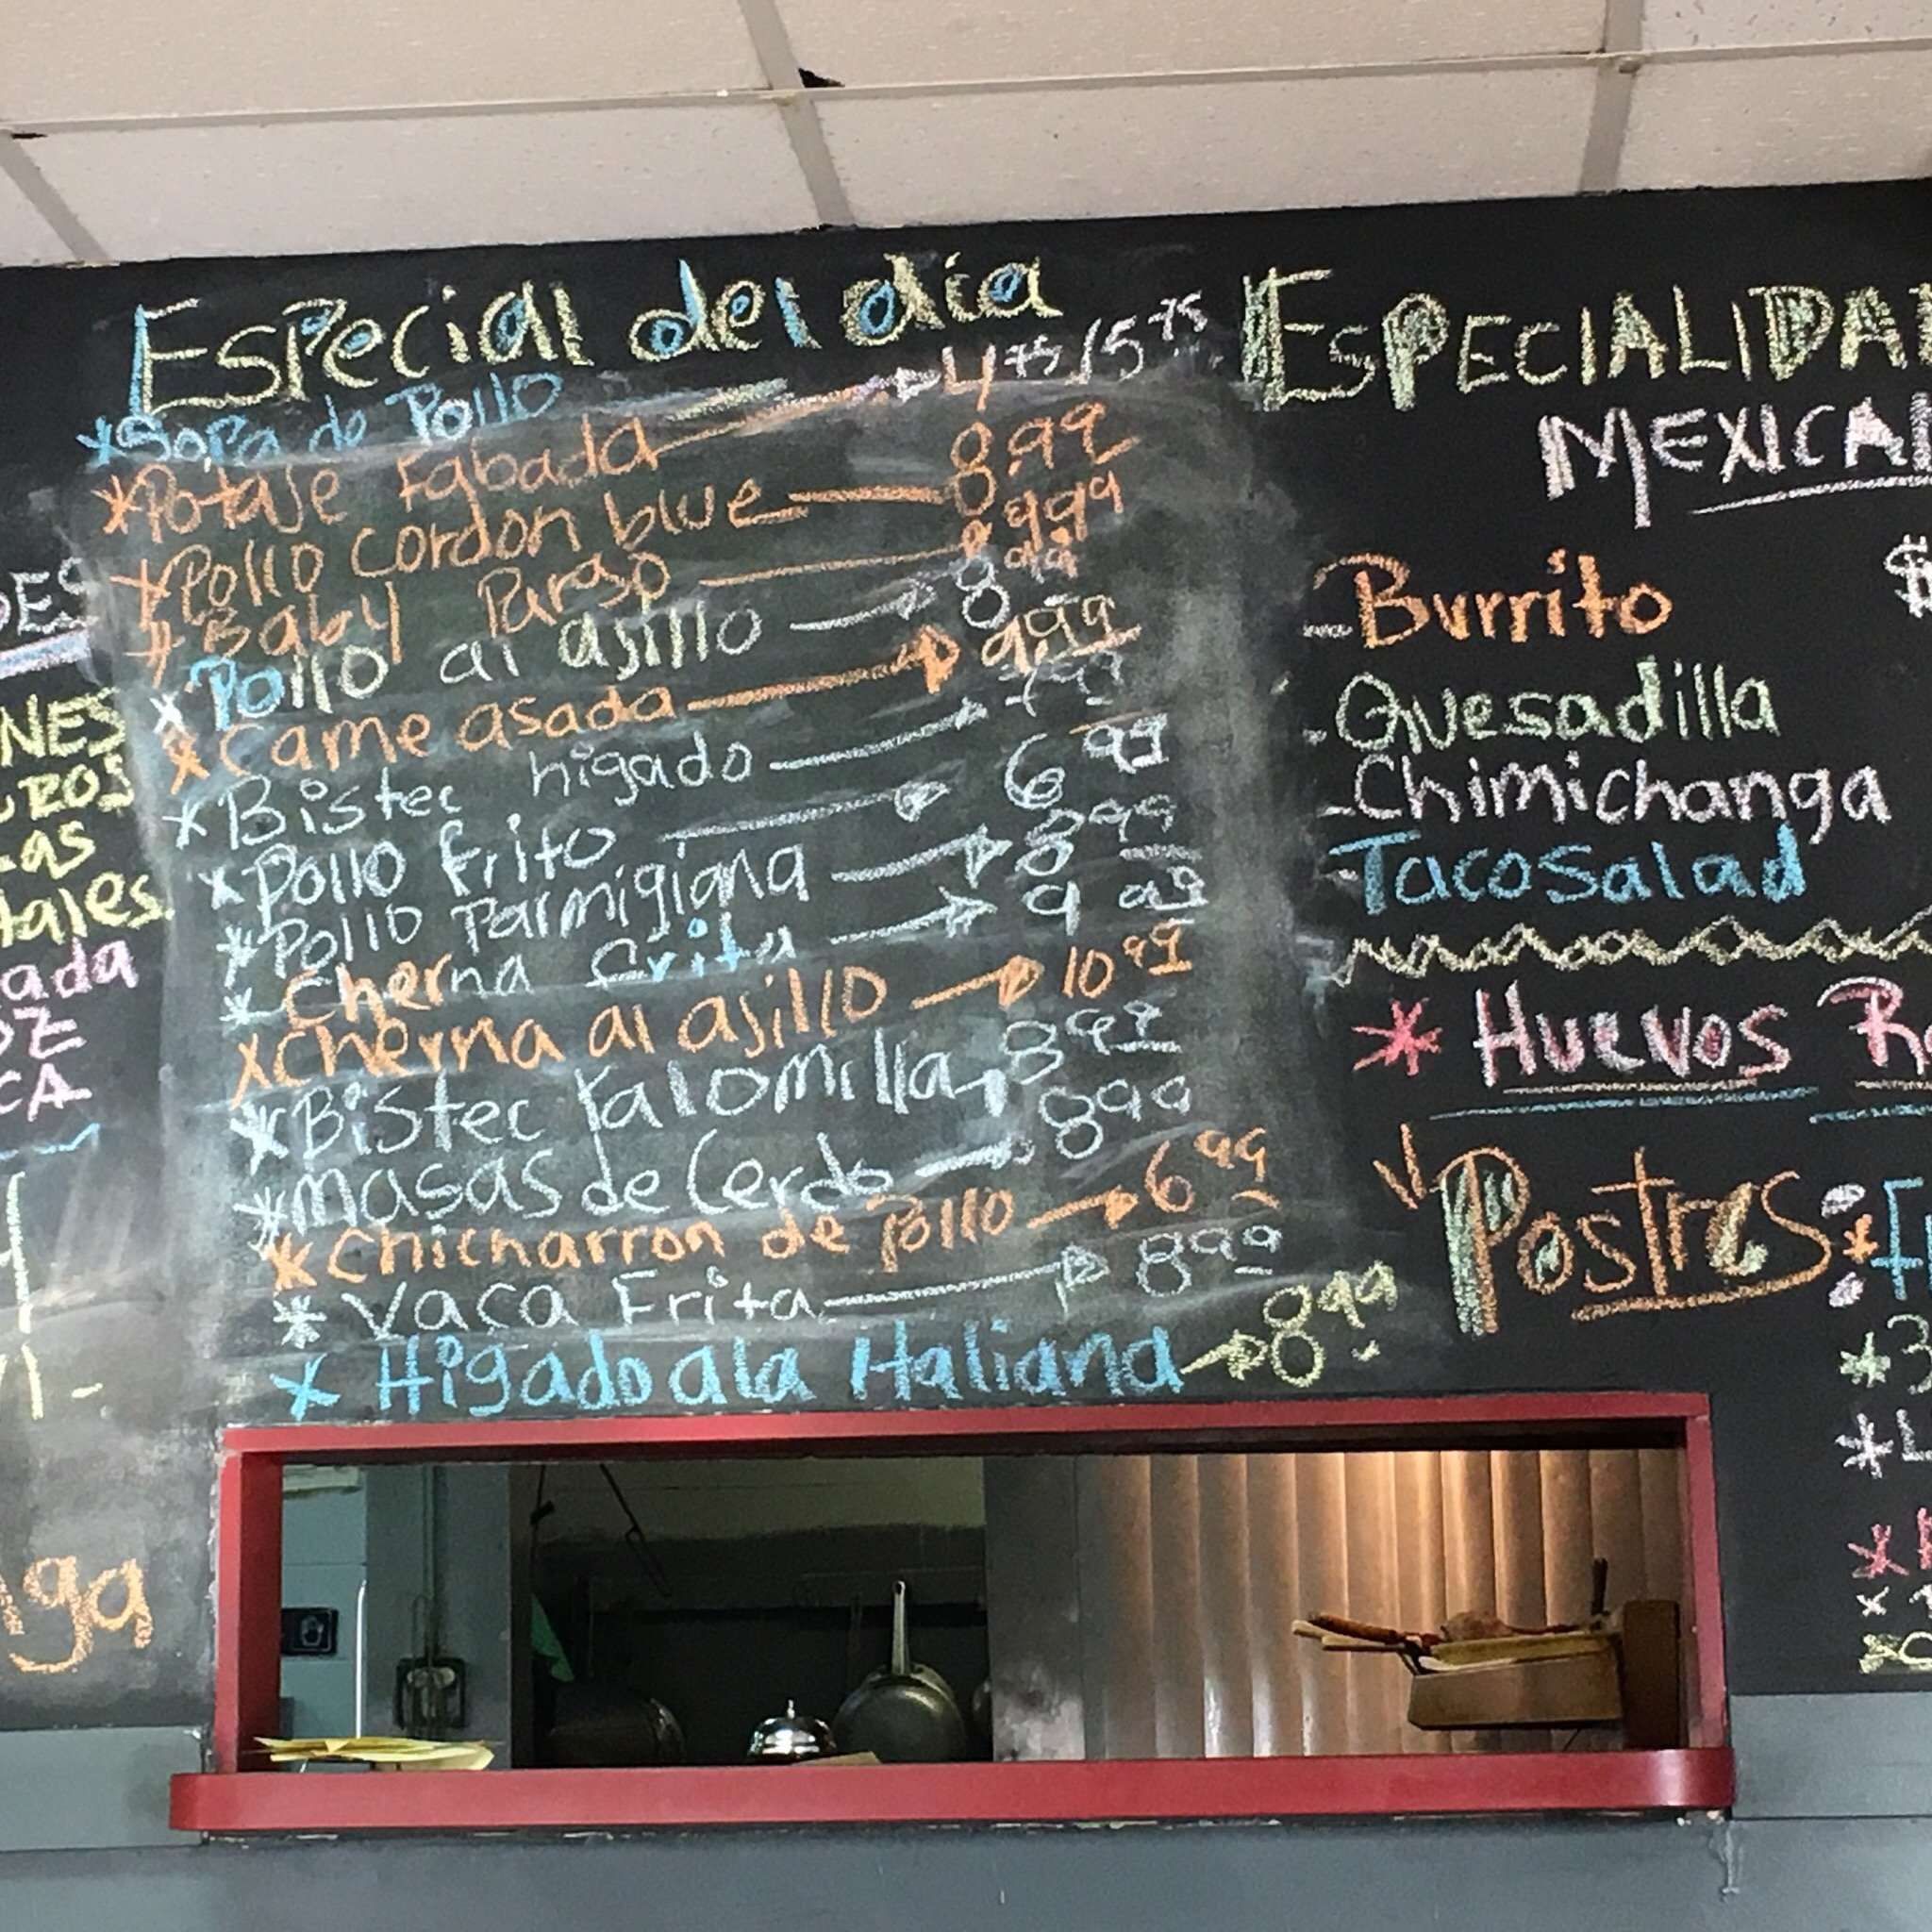 Especial del dia
*Sopa de Pollo
*Potaje Fabada → 4.75/5.75
*Pollo cordon blue — 8.99
*Baby Pargo — 8.999
*Pollo al ajillo → 8.99
*Carne asada → 9.99
*Bistec higado → 7.99
*Pollo frito → 6.99
*Pollo Parmigiana → 8.99
*Cherna frita → 9.99
*Cherna al ajillo → 10.99
*Bistec Palomilla → 8.99
*masas de Cerdo → 8.99
*Chicharron de Pollo → 6.99
*Vaca Frita → 8.99
*Higado ala Italiana → 8.99
ESPECIALIDA
MEXICA
-Burrito $
-Quesadilla
-Chimichanga
-Taco Salad
*Huevos R
Postres:
*3
*L
DES
NES
ROS
LAS
tales
ada
OZ
CA
nga